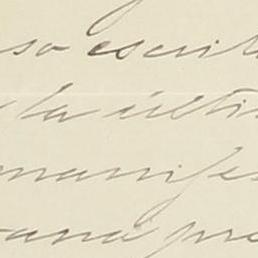 so escrit
la últi
manifes
ana pre